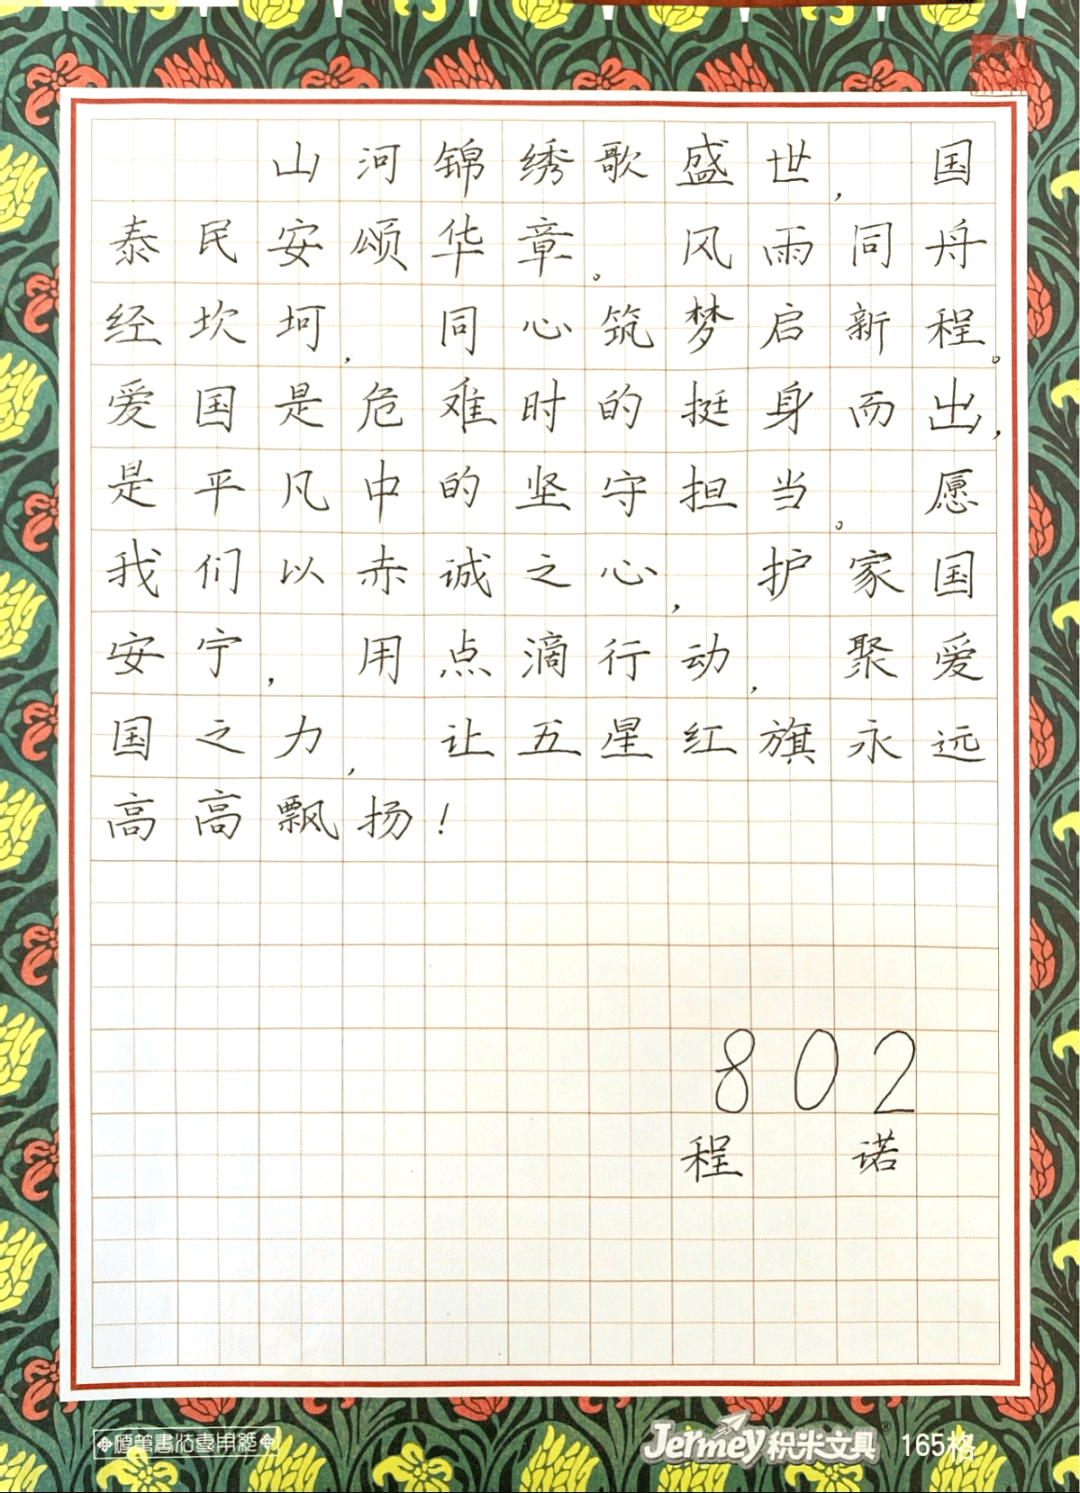 山河锦绣歌盛世,国
泰民安颂华章。风雨同舟
经坎坷,同心筑梦启新程。
爱国是危难时的挺身而出,
是平凡中的坚守担当。愿
我们以赤诚之心,护家国
安宁,用点滴行动,聚爱
国之力,让五星红旗永远
高高飘扬!
802
程诺
硬筆書法專用紙
Jermey积米文具® 165格